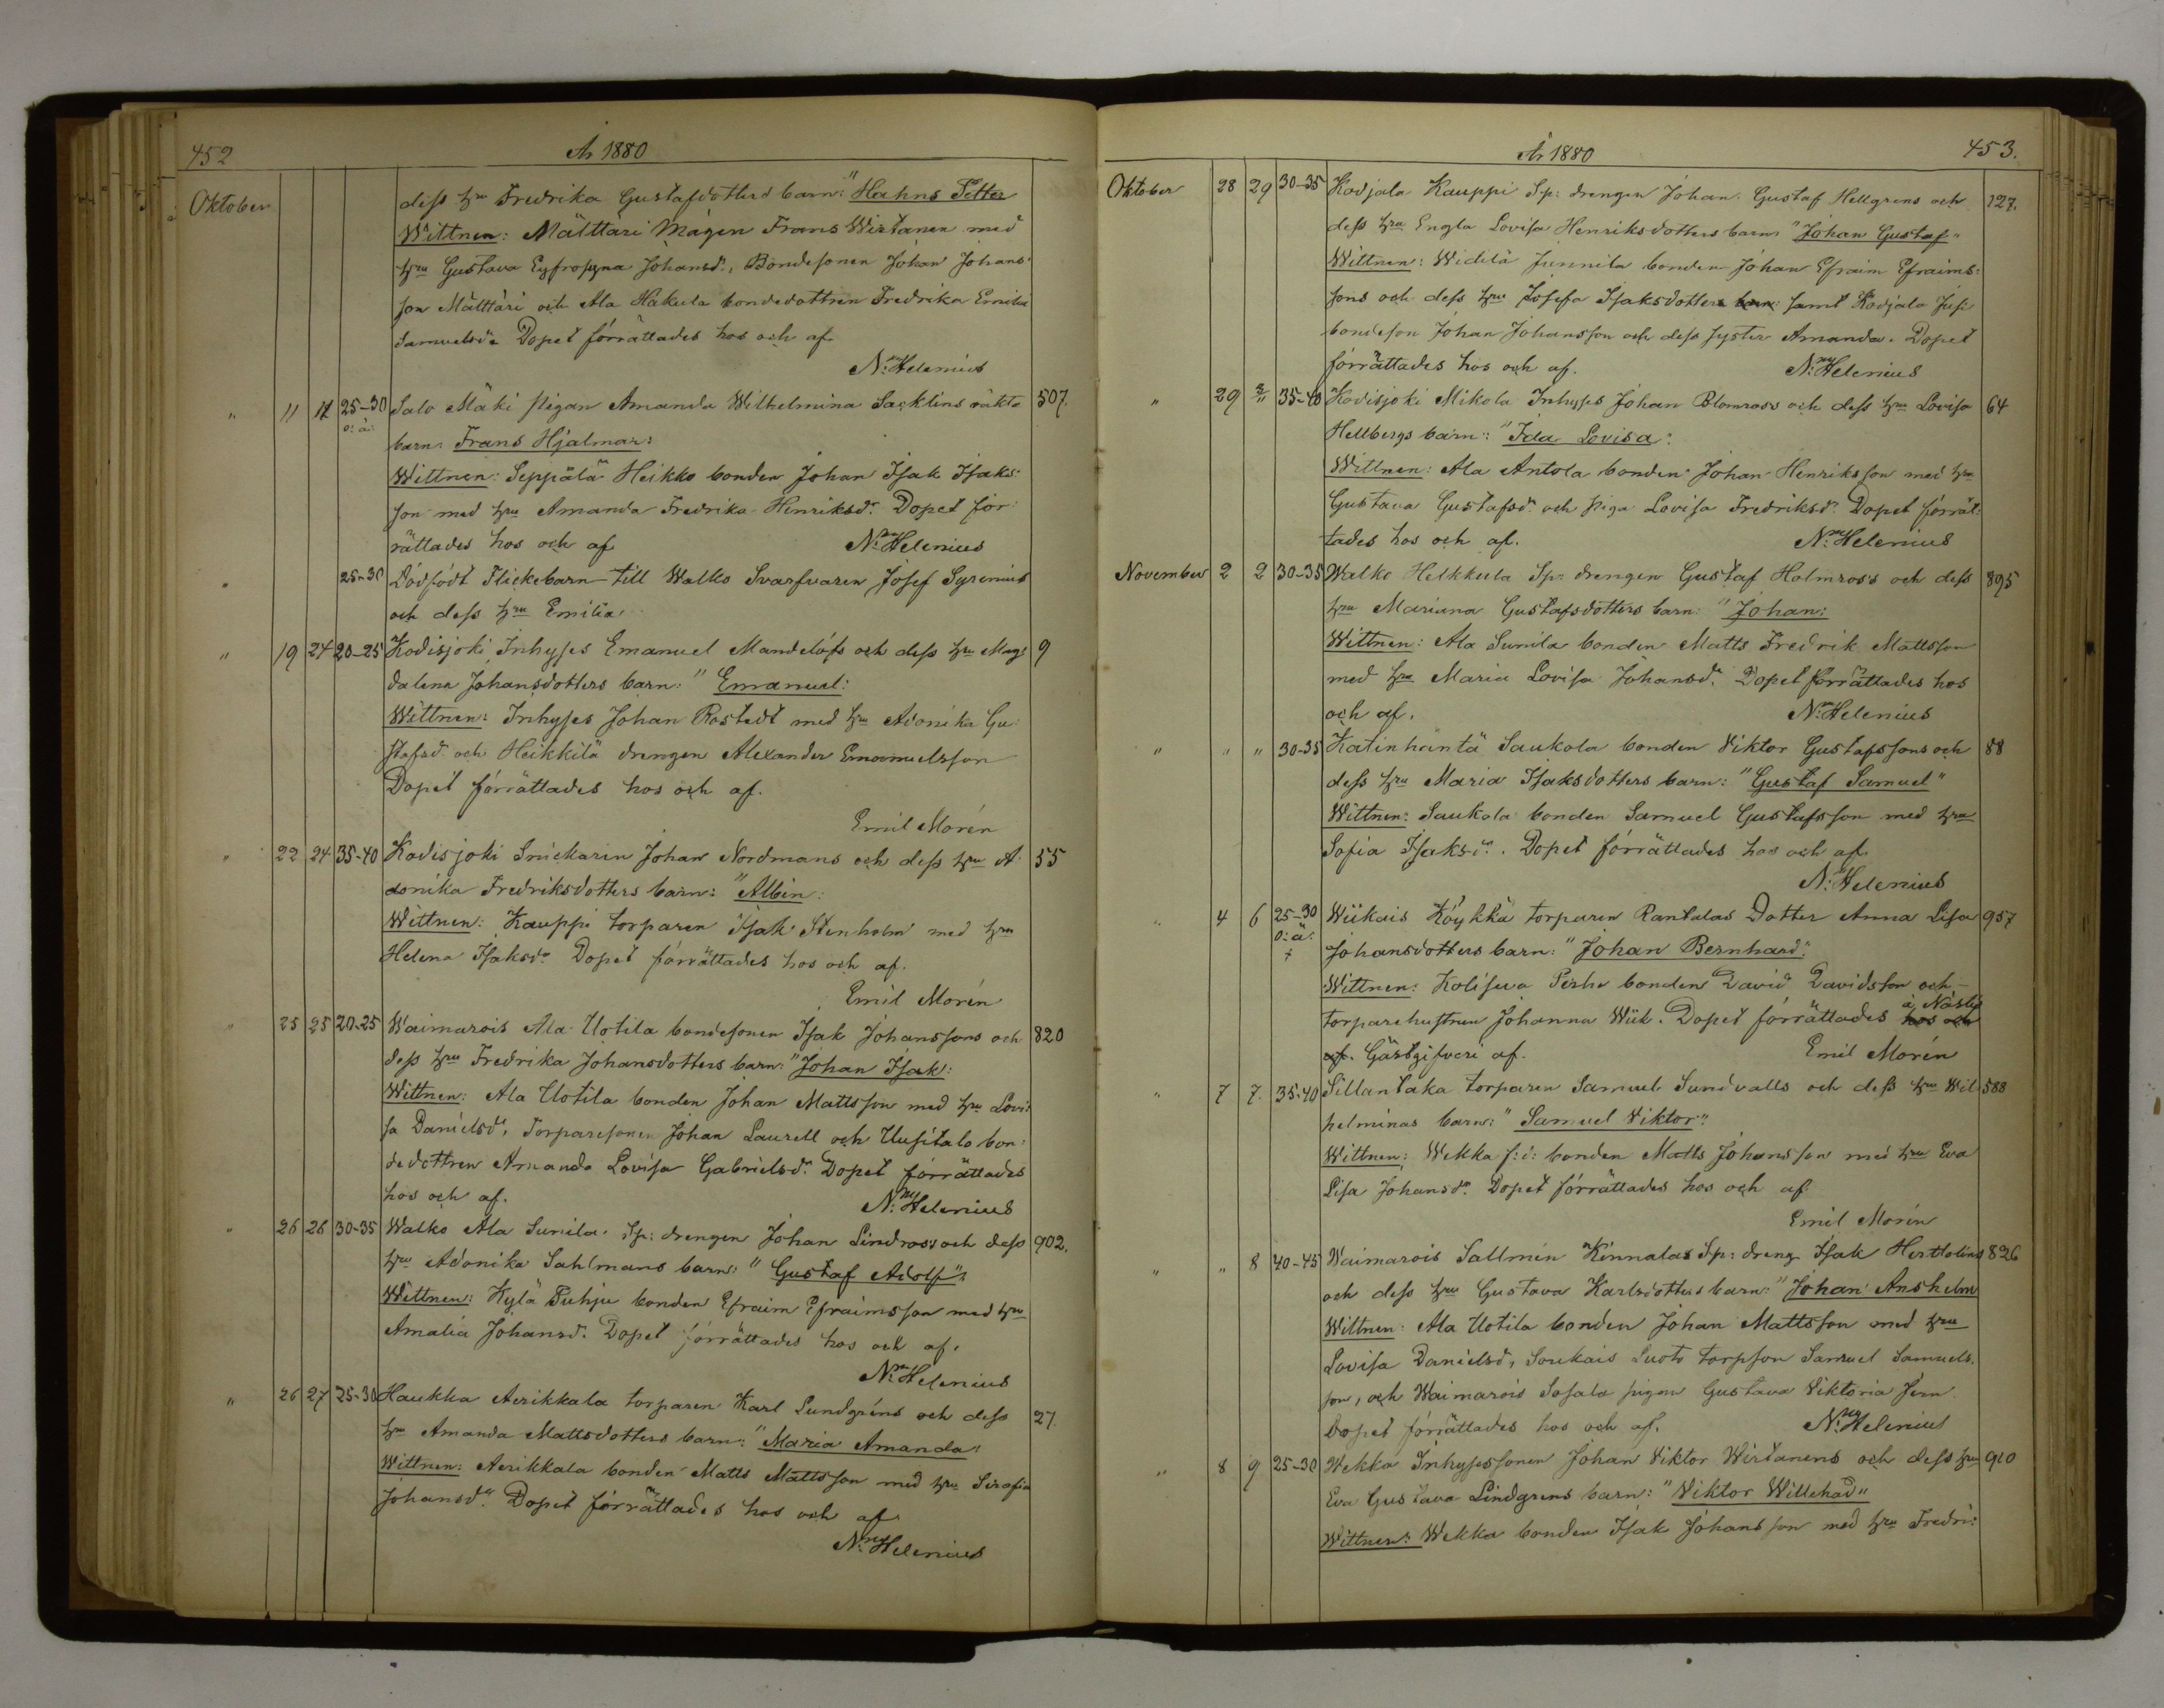 452
År 1880
Oktober
dess hru Fredrika Gustafsdotters barn: "Hahns Petter
Wittnen: Mälttäri Mågen Frans Wirtanen med
hru Gustava Eyfrosyna Johansdr, Bondesonen Johan Johans-
son Mälttäri och Ala Hakula bondedottren Fredrika Emilia
Samuelsdr Dopet förrättades hos och af
N. Helenius
" 11 12 25-30 Salo Mäki pigan Amanda Wilhelmina Sacklins oäkta 507
o: ä: barn: Frans Hjalmar:
Wittnen: Seppälä Heikko bonden Johan Isak Isaks-
son med hru Amanda Fredrika Henriksdr. Dopet för-
rättades hos och af N. Helenius
" 25-30 Dödfödt Flickebarn till Walko Svarfvaren Josef Syrenius
och dess hru Emilia.
" 19 24 20-25 Kodisjoki Inhyses Emanuel Mandelöfs och dess hru Mag- 9
dalena Johansdotters barn: "Emanuel:
Wittnen: Inhyses Johan Rostedt med hru Adonika Gu-
stafsdr och Heikkilä drengen Alexander Emanuelsson
Dopet förrättades hos och af.
Emil Morén
" 22 24 35-40 Kodisjoki Snickaren Johan Nordmans och dess hru A- 55
donika Fredriksdotters barn: "Albin:
Wittnen: Kauppi torparen Isak Stenholm med hru
Helena Isaksdr. Dopet förrättades hos och af.
Emil Morén
" 25 25 20-25 Waimarois Ala Uotila bondesonen Isak Johanssons och 820
dess hru Fredrika Johansdotters barn: "Johan Isak:
Wittnen: Ala Uotila bonden Johan Mattsson med hru Lovi-
sa Danielsdr, Torparesonen Johan Laurell och Uusitalo bon-
dedottren Amanda Lovisa Gabrielsdr. Dopet förrättades
hos och af. N. Helenius
" 26 26 30-35 Walko Ala Sunila Sp: drengen Johan Lindross och dess 902.
hru Adonika Sahlmans barn: "Gustaf Adolf".
Wittnen: Kylä Puhju bonden Efraim Efraimsson med hru
Amalia Johansdr. Dopet förrättades hos och af.
N. Helenius
" 26 27 25-30 Haukka Aerikkala torparen Karl Lundgréns och dess 27.
hru Amanda Mattsdotters barn: "Maria Amanda:
Wittnen: Aerikkala bonden Matts Mattsson med hru Serafia
Johansdr. Dopet förrättades hos och af
N. Helenius
År 1880
453.
Oktober 28 29 30-35 Kodjala Kauppi Sp: drengen Johan Gustaf Hellgrens och 127.
dess hru Engla Lovisa Henriksdotters barn "Johan Gustaf"
Wittnen: Widilä Junnila bonden Johan Efraim Efraims-
sons och dess hru Josefa Isaksdotters barn: samt Kodjala Jusi
bondeson Johan Johansson och dess syster Amanda. Dopet
förrättades hos och af. N. Helenius
" 29 2/11 35-40 Kodisjoki Mikola Inhyses Johan Blomross och dess hru Lovisa 64
Hellbergs barn: "Ida Lovisa:
Wittnen: Ala Antola bonden Johan Henriksson med hru
Gustava Gustafsdr. och piga Lovisa Fredriksdr. Dopet förrät-
tades hos och af. N. Helenius
November 2 2 30-35 Walko Helkkula Sp: drengen Gustaf Holmross och dess 895
hru Mariana Gustafsdotters barn: "Johan:
Wittnen: Ala Sunila bonden Matts Fredrik Mattsson
med hru Maria Lovisa Johansdr. Dopet förrättades hos
och af. N. Helenius
" " " 30-35 Katinhäntä Saukola bonden Viktor Gustafssons och 88
dess hru Maria Isaksdotters barn: "Gustaf Samuel"
Wittnen: Saukola bonden Samuel Gustafsson med hru
Sofia Isaksdr. Dopet förrättades hos och af.
N. Helenius
" 4 6 25-30 Wiikais Köykkä torparen Rantalas Dotter Anna Lisa 957
o: ä: Johansdotters barn: "Johan Bernhard".
Wittnen: Kolisuva Perhe bonden David Davidsson och
torparehustrun Johanna Wiik. Dopet förrättades hos och à Näsby
af. Gästgifveri af. Emil Morén
" 7 7. 35-40 Sillantaka torparen Samuel Sundvalls och dess hru Wil- 588
helminas barn: "Samuel Viktor".
Wittnen: Wekka f: d: bonden Matts Johansson med hru Eva
Lisa Johansdr. Dopet förrättades hos och af
Emil Morén
" " 8 40-45 Waimarois Sallmén Kinnalas Sp: dreng Isak Herttolins 826
och dess hru Gustava Karlsdotters barn: "Johan Anshelm
Wittnen: Ala Uotila bonden Johan Mattsson med hru
Lovisa Danielsdr, Soukais Luoto torpson Samuel Samuels-
son, och Waimarois Sofala pigan Gustava Viktoria Fern
Dopet förrättades hos och af. N. Helenius
" 8 9 25-30 Wekka Inhysessonen Johan Viktor Wirtanens och dess hru 910
Eva Gustava Lindgrens barn: "Viktor Willehad"
Wittnen: Wekka bonden Isak Johansson med hru Fredri-